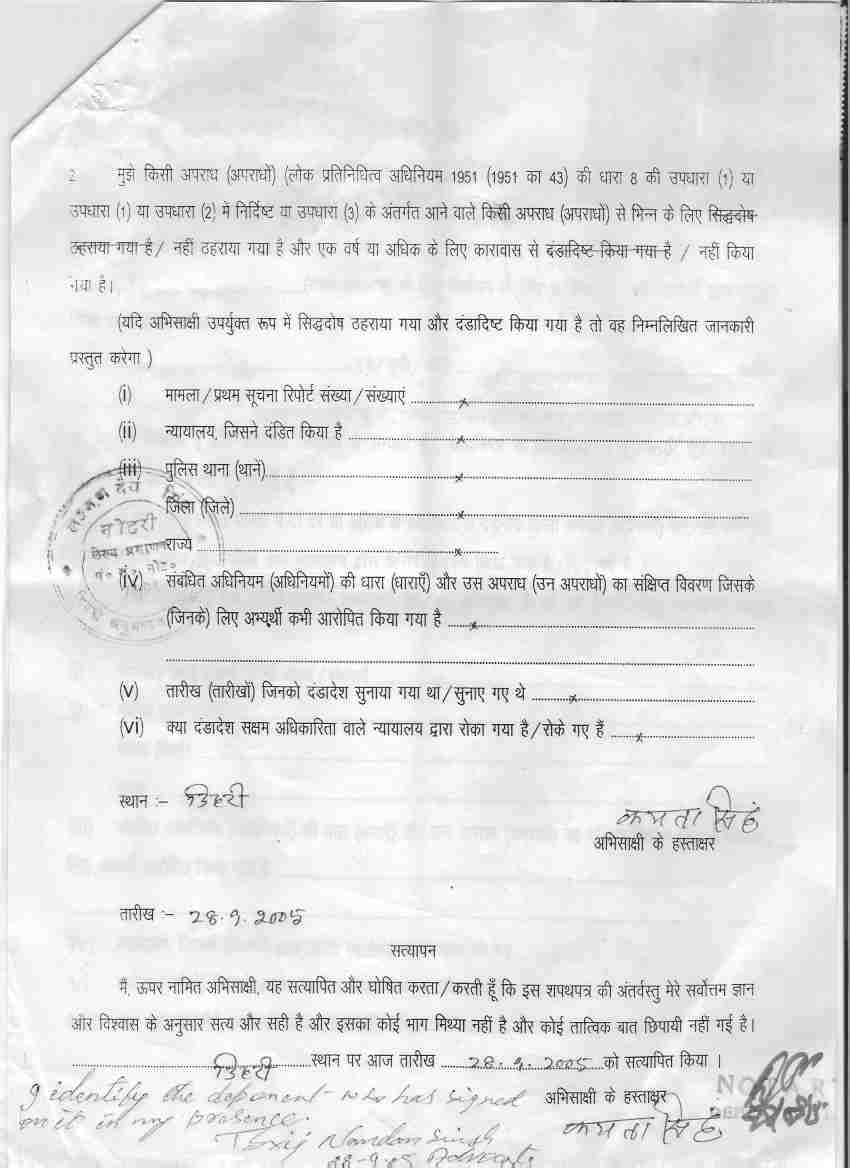 2 मुझे किसी अपराध (अपराधों) (लोक प्रतिनिधित्व अधिनियम 1951 (1951 का 43) की धारा 8 की उपधारा (1) या
उपधारा (1) या उपधारा (2) में निर्दिष्ट या उपधारा (3) के अंतर्गत आने वाले किसी अपराध (अपराधों) से भिन्न के लिए सिद्धदोष
ठहराया गया है / नहीं ठहराया गया है और एक वर्ष या अधिक के लिए कारावास से दंडादिष्ट किया गया है / नहीं किया
गया है।
(यदि अभिसाक्षी उपर्युक्त रूप में सिद्धदोष ठहराया गया और दंडादिष्ट किया गया है तो वह निम्नलिखित जानकारी
प्रस्तुत करेगा )
(i) मामला/प्रथम सूचना रिपोर्ट संख्या/संख्याएं x
(ii) न्यायालय, जिसने दंडित किया है x
(iii) पुलिस थाना (थाने) x
जिला (जिले) x
नोटरी
राज्य x
(iv) संबंधित अधिनियम (अधिनियमों) की धारा (धाराएँ) और उस अपराध (उन अपराधों) का संक्षिप्त विवरण जिसके
(जिनके) लिए अभ्यर्थी कभी आरोपित किया गया है x
(v) तारीख (तारीखों) जिनको दंडादेश सुनाया गया था/सुनाए गए थे x
(vi) क्या दंडादेश सक्षम अधिकारिता वाले न्यायालय द्वारा रोका गया है/रोके गए हैं x
स्थान :- डिहरी
कामता सिंह
अभिसाक्षी के हस्ताक्षर
तारीख :- 28.9.2005
सत्यापन
मैं, ऊपर नामित अभिसाक्षी, यह सत्यापित और घोषित करता/करती हूँ कि इस शपथपत्र की अंतर्वस्तु मेरे सर्वोत्तम ज्ञान
और विश्वास के अनुसार सत्य और सही है और इसका कोई भाग मिथ्या नहीं है और कोई तात्विक बात छिपायी नहीं गई है।
डिहरी स्थान पर आज तारीख 28.9.2005 को सत्यापित किया ।
I identify the deponent who has signed
on it in my presence.
अभिसाक्षी के हस्ताक्षर
कामता सिंह
Nandan Singh
28-9-05 Advocate